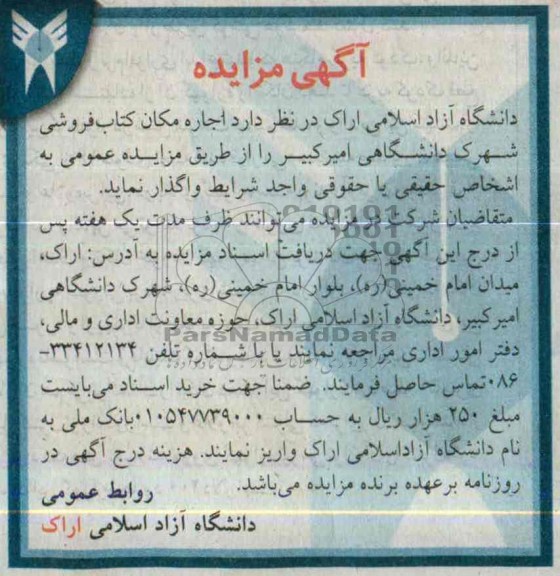 آگهی مزایده
دانشگاه آزاد اسلامی اراک در نظر دارد اجاره مکان کتاب‌فروشی
شهرک دانشگاهی امیرکبیر را از طریق مزایده عمومی به
اشخاص حقیقی یا حقوقی واجد شرایط واگذار نماید.
متقاضیان شرکت در مزایده می‌توانند ظرف مدت یک هفته پس
از درج این آگهی جهت دریافت اسناد مزایده به آدرس: اراک،
میدان امام خمینی(ره)، بلوار امام خمینی(ره)، شهرک دانشگاهی
امیرکبیر، دانشگاه آزاد اسلامی اراک، حوزه معاونت اداری و مالی،
دفتر امور اداری مراجعه نمایند یا با شماره تلفن ۳۳۴۱۲۱۳۴-
۰۸۶تماس حاصل فرمایند. ضمنا جهت خرید اسناد می‌بایست
مبلغ ۲۵۰ هزار ریال به حساب ۰۱۰۵۴۷۷۳۹۰۰۰بانک ملی به
نام دانشگاه آزاداسلامی اراک واریز نمایند. هزینه درج آگهی در
روزنامه برعهده برنده مزایده می‌باشد.
روابط عمومی
دانشگاه آزاد اسلامی اراک
ParsNamadData